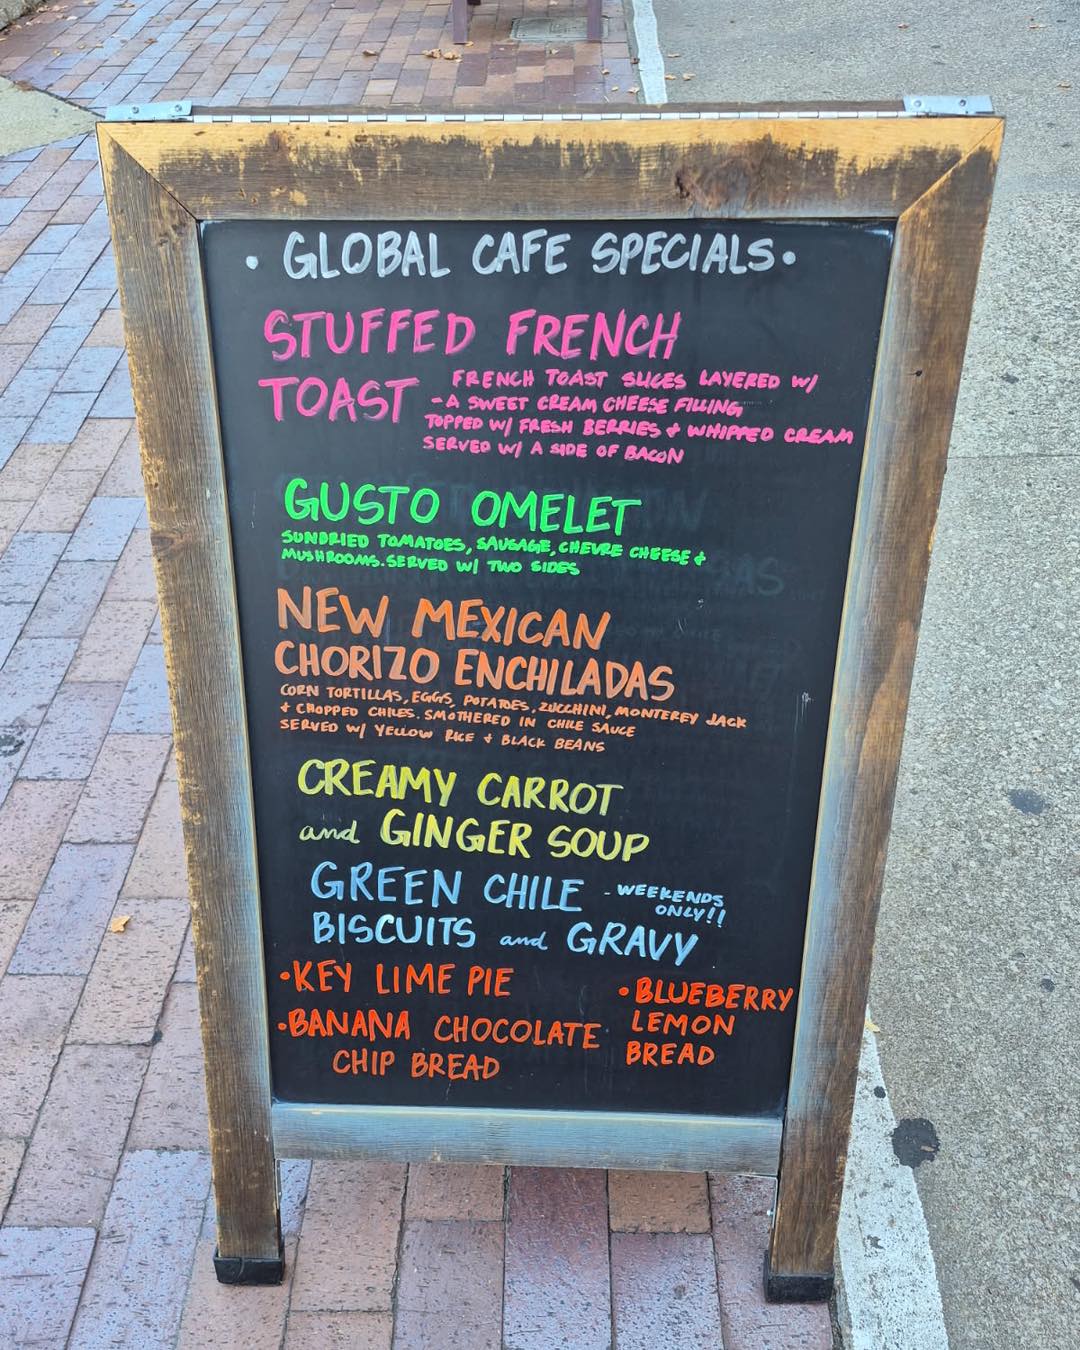 • GLOBAL CAFE SPECIALS •
STUFFED FRENCH
TOAST
FRENCH TOAST SLICES LAYERED W/
- A SWEET CREAM CHEESE FILLING
TOPPED W/ FRESH BERRIES + WHIPPED CREAM
SERVED W/ A SIDE OF BACON
GUSTO OMELET
SUNDRIED TOMATOES, SAUSAGE, CHEVRE CHEESE +
MUSHROOMS. SERVED W/ TWO SIDES
NEW MEXICAN
CHORIZO ENCHILADAS
CORN TORTILLAS, EGGS, POTATOES, ZUCCHINI, MONTEREY JACK
+ CHOPPED CHILES. SMOTHERED IN CHILE SAUCE
SERVED W/ YELLOW RICE + BLACK BEANS
CREAMY CARROT
and GINGER SOUP
GREEN CHILE - WEEKENDS
ONLY!!
BISCUITS and GRAVY
• KEY LIME PIE
• BANANA CHOCOLATE
CHIP BREAD
• BLUEBERRY
LEMON
BREAD